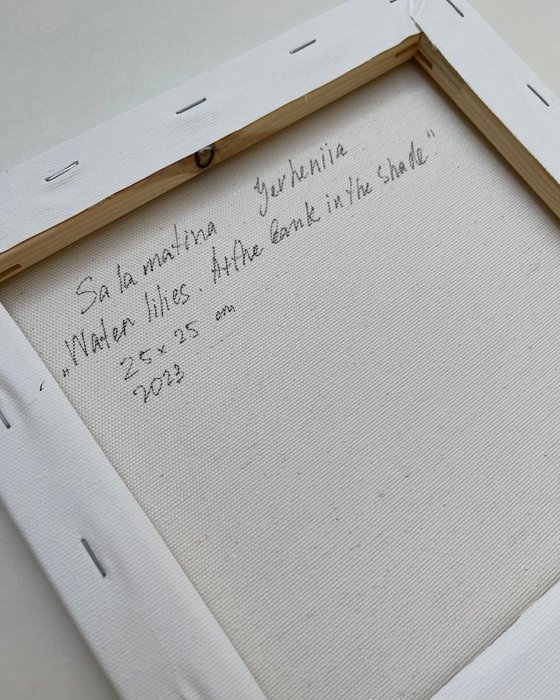 Salamatina Yevheniia
„Water lilies. At the bank in the shade"
25 x 25 cm
2023